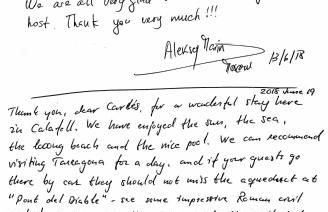 We are all very glad
host. Thank you very much!!!
Aleksej
13/6/18
2018 June 19
Thank you, dear Carles, for a wonderful stay here
in Calafell. We have enjoyed the sun, the sea,
the loong beach and the nice pool. We can recommend
visiting Tarragona for a day, and if your guests go
there by car they should not miss the aqueduct at
"Pont del Diable" - see some impressive Roman civil